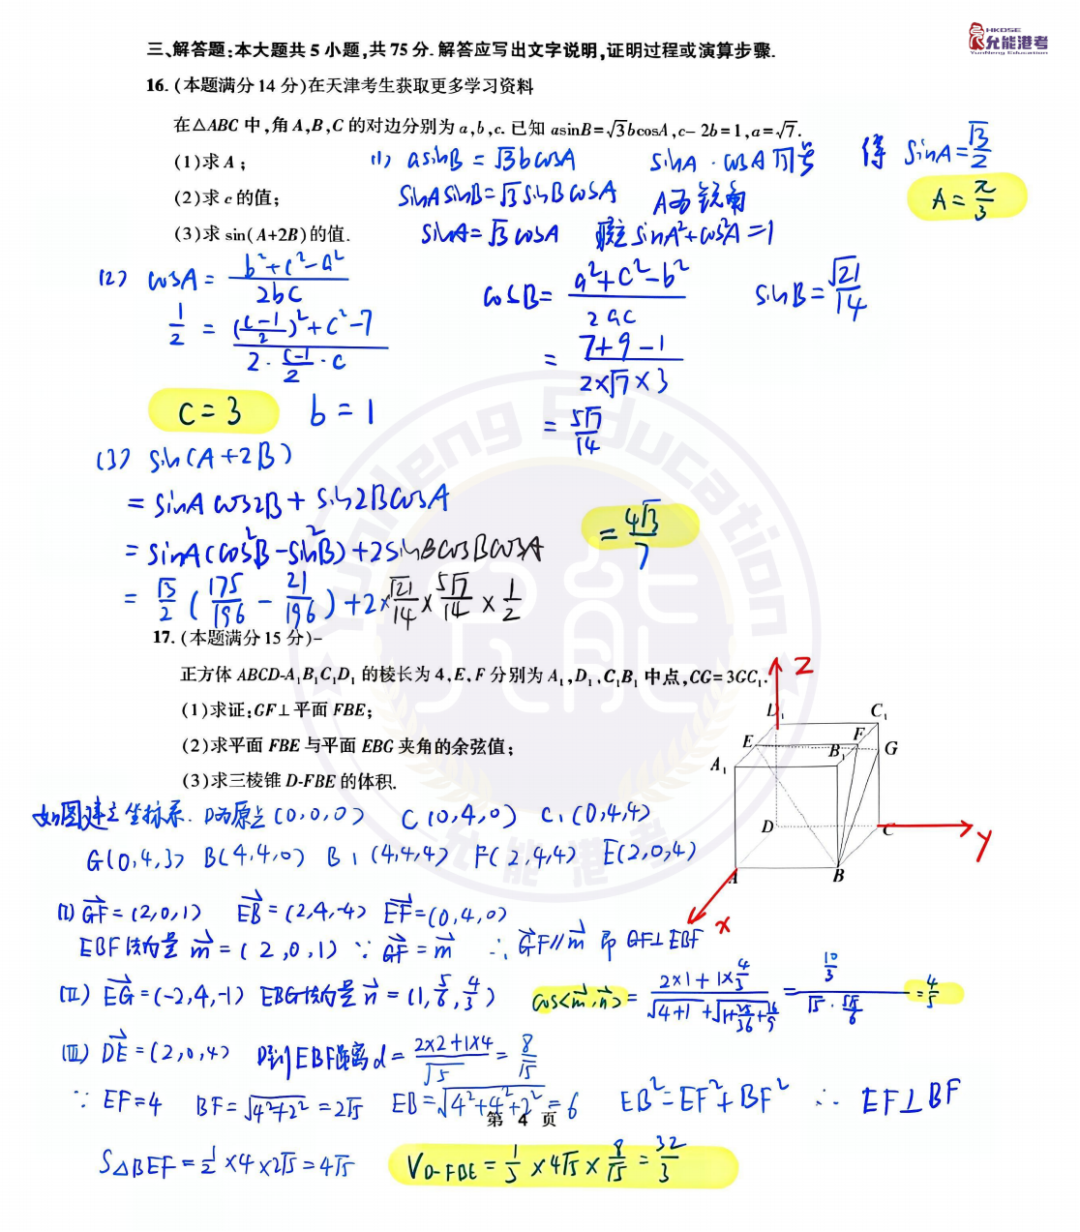 HKDSE
允能港考
YunNeng Education
三、解答题:本大题共5小题,共75分.解答应写出文字说明,证明过程或演算步骤.
16.(本题满分14分)在天津考生获取更多学习资料
在△ABC中,角A,B,C的对边分别为a,b,c.已知asinB=√3bcosA,c-2b=1,a=√7.
(1)求A;
(2)求c的值;
(3)求sin(A+2B)的值.
(1) asinB = √3bcosA
sinAsinB=√3sinBcosA
sinA=√3cosA
sinA·cosA同号
A为锐角
联立sinA²+cos²A=1
得 sinA=√3/2
A=π/3
(2) cosA = (b²+c²-a²)/2bc
1/2 = (((c-1)/2)²+c²-7)/(2·(c-1)/2·c)
c=3 b=1
cosB= (a²+c²-b²)/2ac
= (7+9-1)/(2×√7×3)
= 5√7/14
sinB=√21/14
(3) sin(A+2B)
= sinAcos2B+sin2BcosA
= sinA(cos²B-sin²B)+2sinBcosBcosA
= √3/2(175/196-21/196)+2×√21/14×5√7/14×1/2
= 4√3/7
17.(本题满分15分)-
正方体ABCD-A₁B₁C₁D₁的棱长为4,E,F分别为A₁,D₁,C₁B₁中点,CG=3GC₁.
(1)求证:GF⊥平面FBE;
(2)求平面FBE与平面EBG夹角的余弦值;
(3)求三棱锥D-FBE的体积.
Z
D₁ C₁
E F
A₁ B₁ G
D C y
A B
x
如图建立坐标系. D为原点(0,0,0) C(0,4,0) C₁(0,4,4)
G(0,4,3) B(4,4,0) B₁(4,4,4) F(2,4,4) E(2,0,4)
(I) GF=(2,0,1) EB=(2,4,-4) EF=(0,4,0)
EBF法向量m=(2,0,1) ∵GF=m ∴GF//m 即GF⊥EBF
(II) EG=(-2,4,-1) EBG法向量n=(1,5/6,4/3) cos<m,n>= (2×1+1×4/3)/(√4+1+√1+25/36+16/9) = (10/3)/(√5·5√5/6) = 4/5
(III) DE=(2,0,4) D到EBF距离d= (2×2+1×4)/√5 = 8/√5
∵ EF=4 BF=√4²+2²=2√5 EB=√4²+4²+2²=6 EB²=EF²+BF² ∴ EF⊥BF
第 4 页
S△BEF=1/2×4×2√5=4√5 V D-FBE=1/3×4√5×8/√5=32/3
YunNeng Education
允能
允能港考